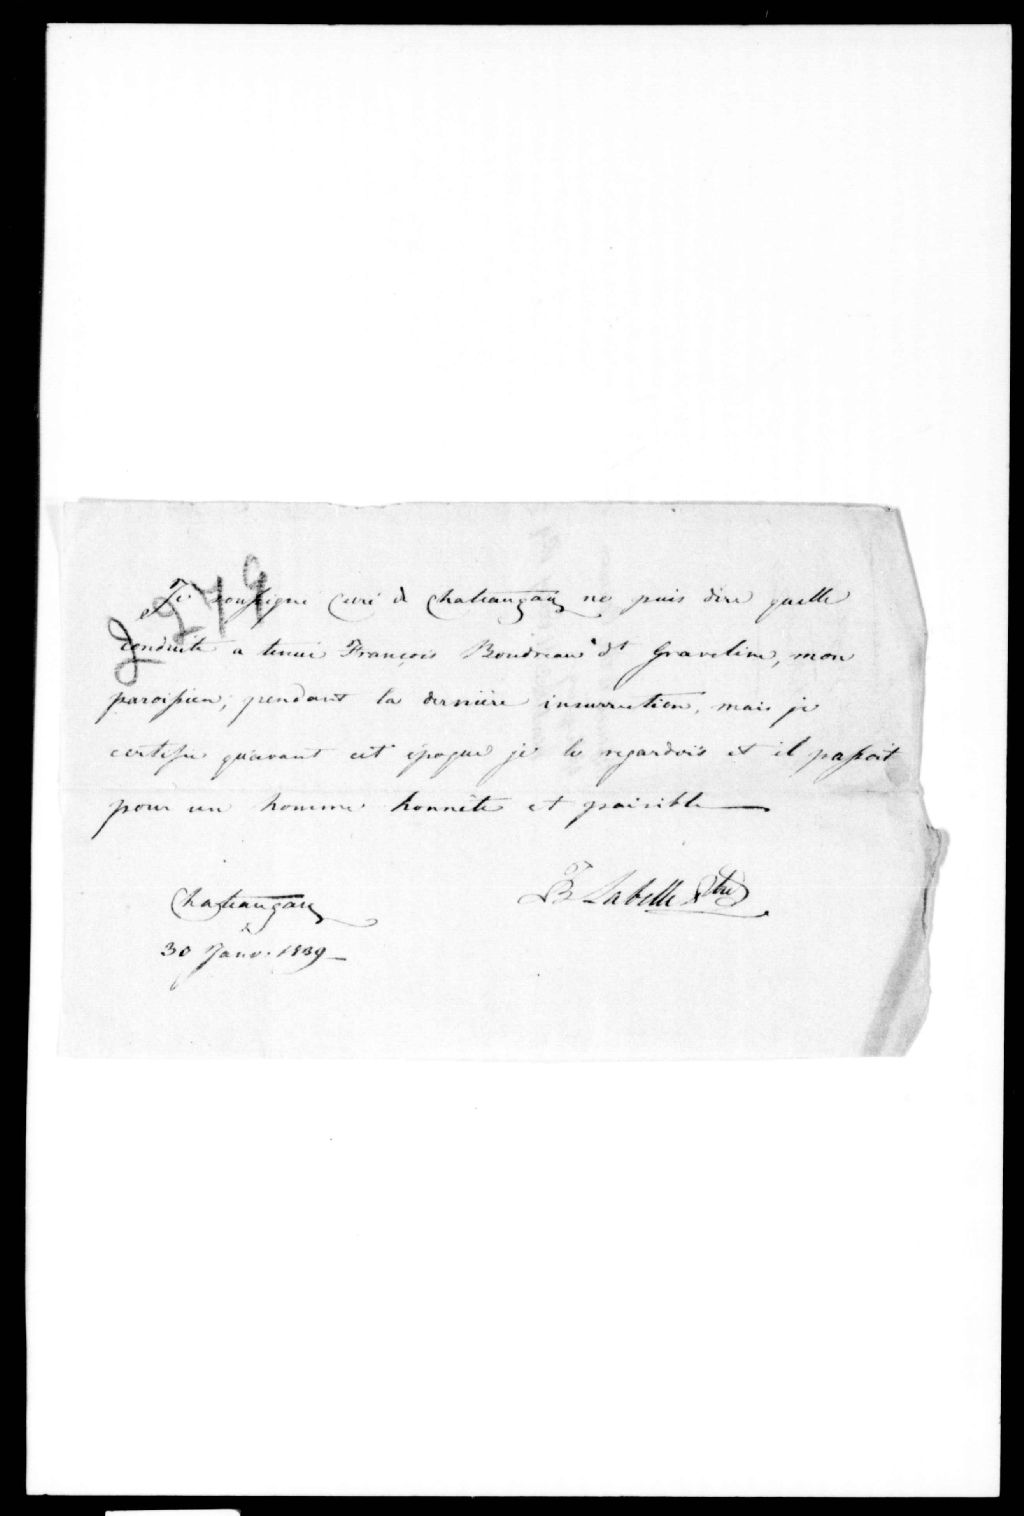 Je soussigné Curé de Chateaugay ne puis dire quelle
conduite a tenue François Boudreau dt Graveline, mon
paroissien, pendant la dernière insurrection, mais je
certifie qu'avant cet époque je le regardois et il passoit
pour un homme honnête et paisible
JB Labelle Ptre
Chateaugay
30 Janv. 1839